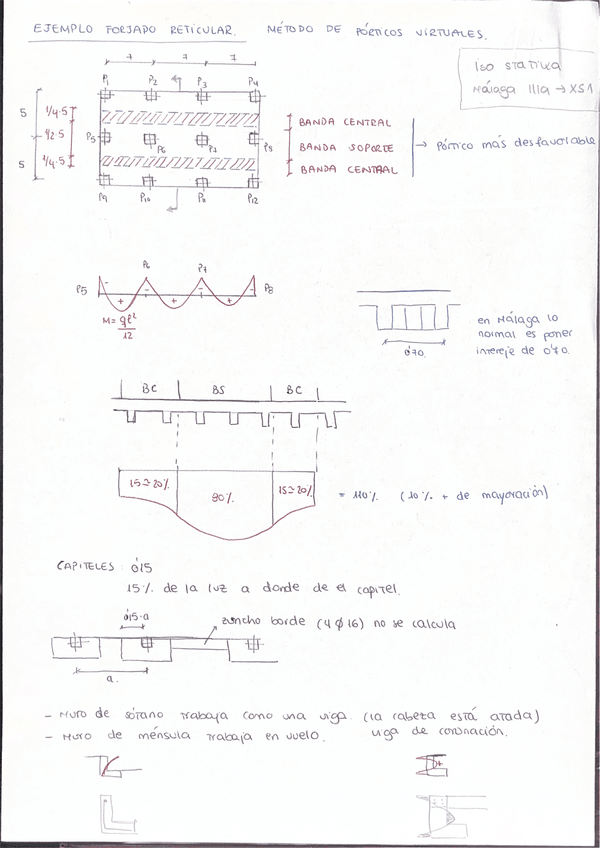 EJEMPLO FORJADO RETICULAR. MÉTODO DE PÓRTICOS VIRTUALES.
ISO STATIKA
Málaga IIIa → XS1
7 7 7
P1 P2 P3 P4
5 1/4·5
1/2·5
5 1/4·5
P5 P6 P7 P8
P9 P10 P11 P12
BANDA CENTRAL
BANDA SOPORTE → Pórtico más desfavorable
BANDA CENTRAL
P5 P6 P7 P8
- + - + - + -
M = ql²/12
0'70
en Málaga lo
normal es poner
intereje de 0'70.
BC BS BC
15≃20% 90% 15≃20% = 110% (10% + de mayoración)
CAPITELES: 0'15
15% de la luz a donde de el capitel.
0'15·a
zuncho borde (4 ϕ 16) no se calcula
a.
- Muro de sótano trabaja como una viga (la cabeza está atada)
- Muro de ménsula trabaja en vuelo. viga de coronación.
+